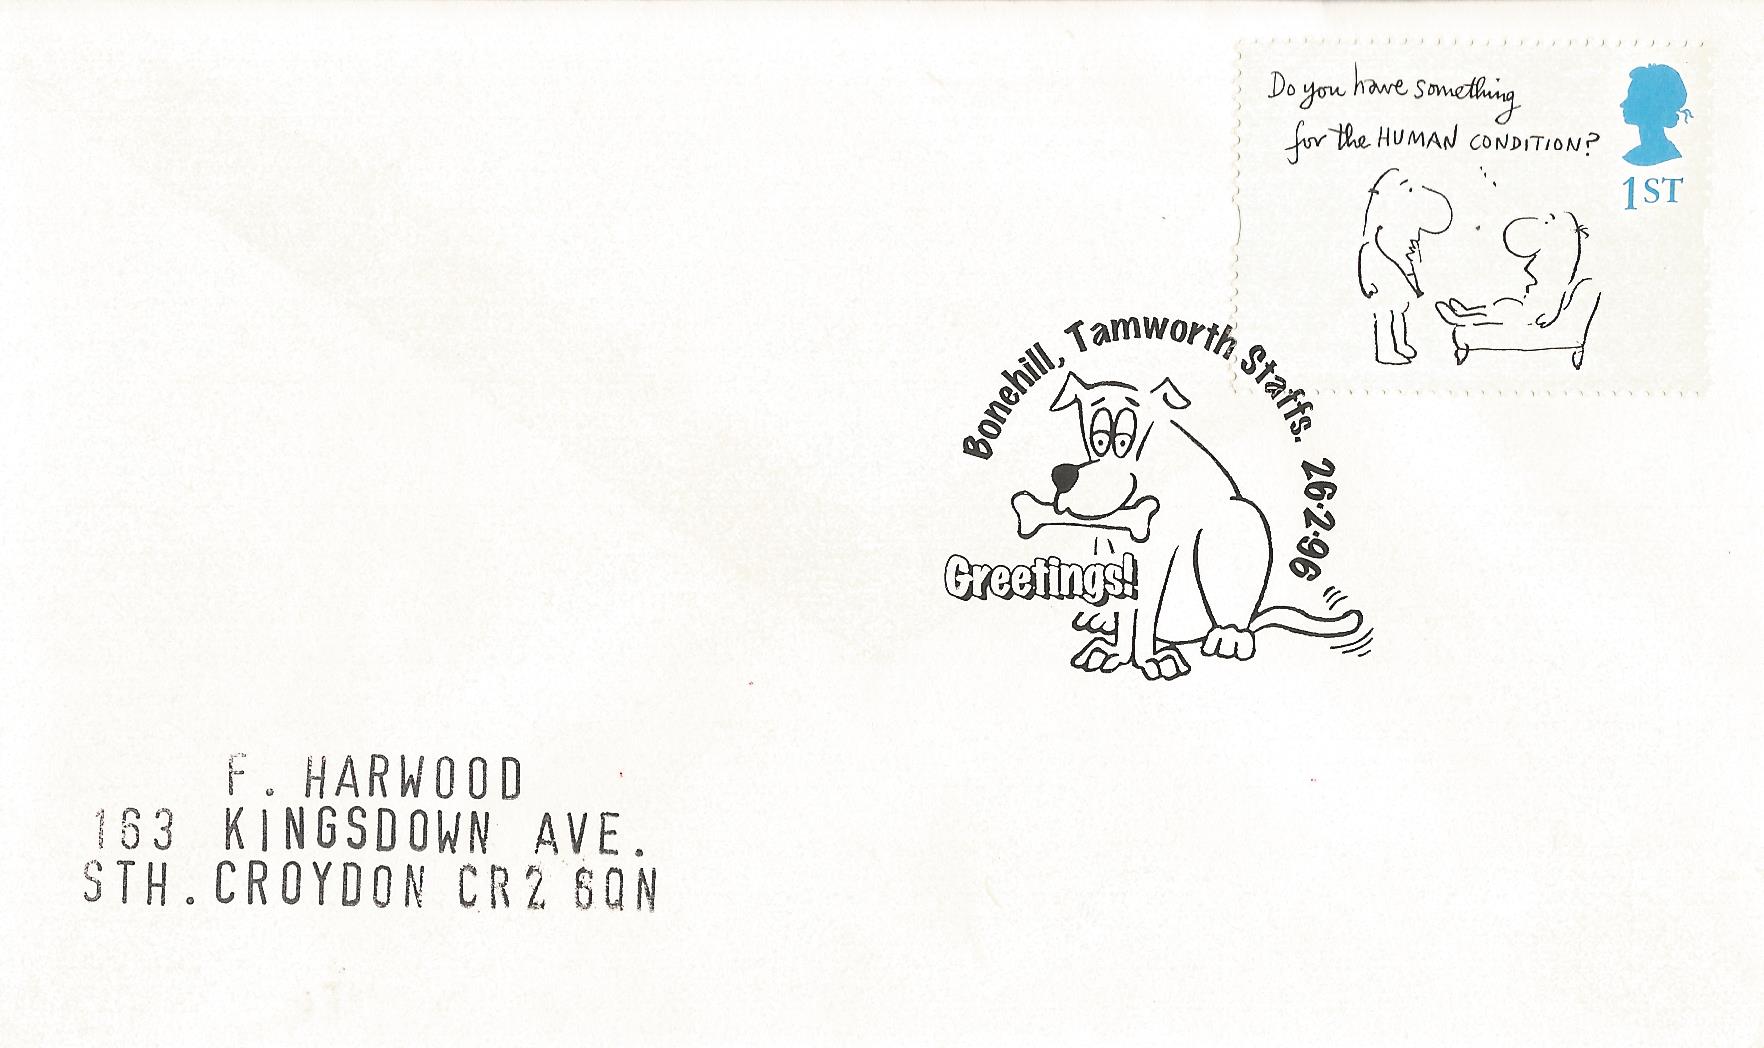 Do you have something
for the HUMAN CONDITION?
1ST
Bonehill, Tamworth Staffs. 26·2·96
Greetings!
F. HARWOOD
163 KINGSDOWN AVE.
STH. CROYDON CR2 6QN